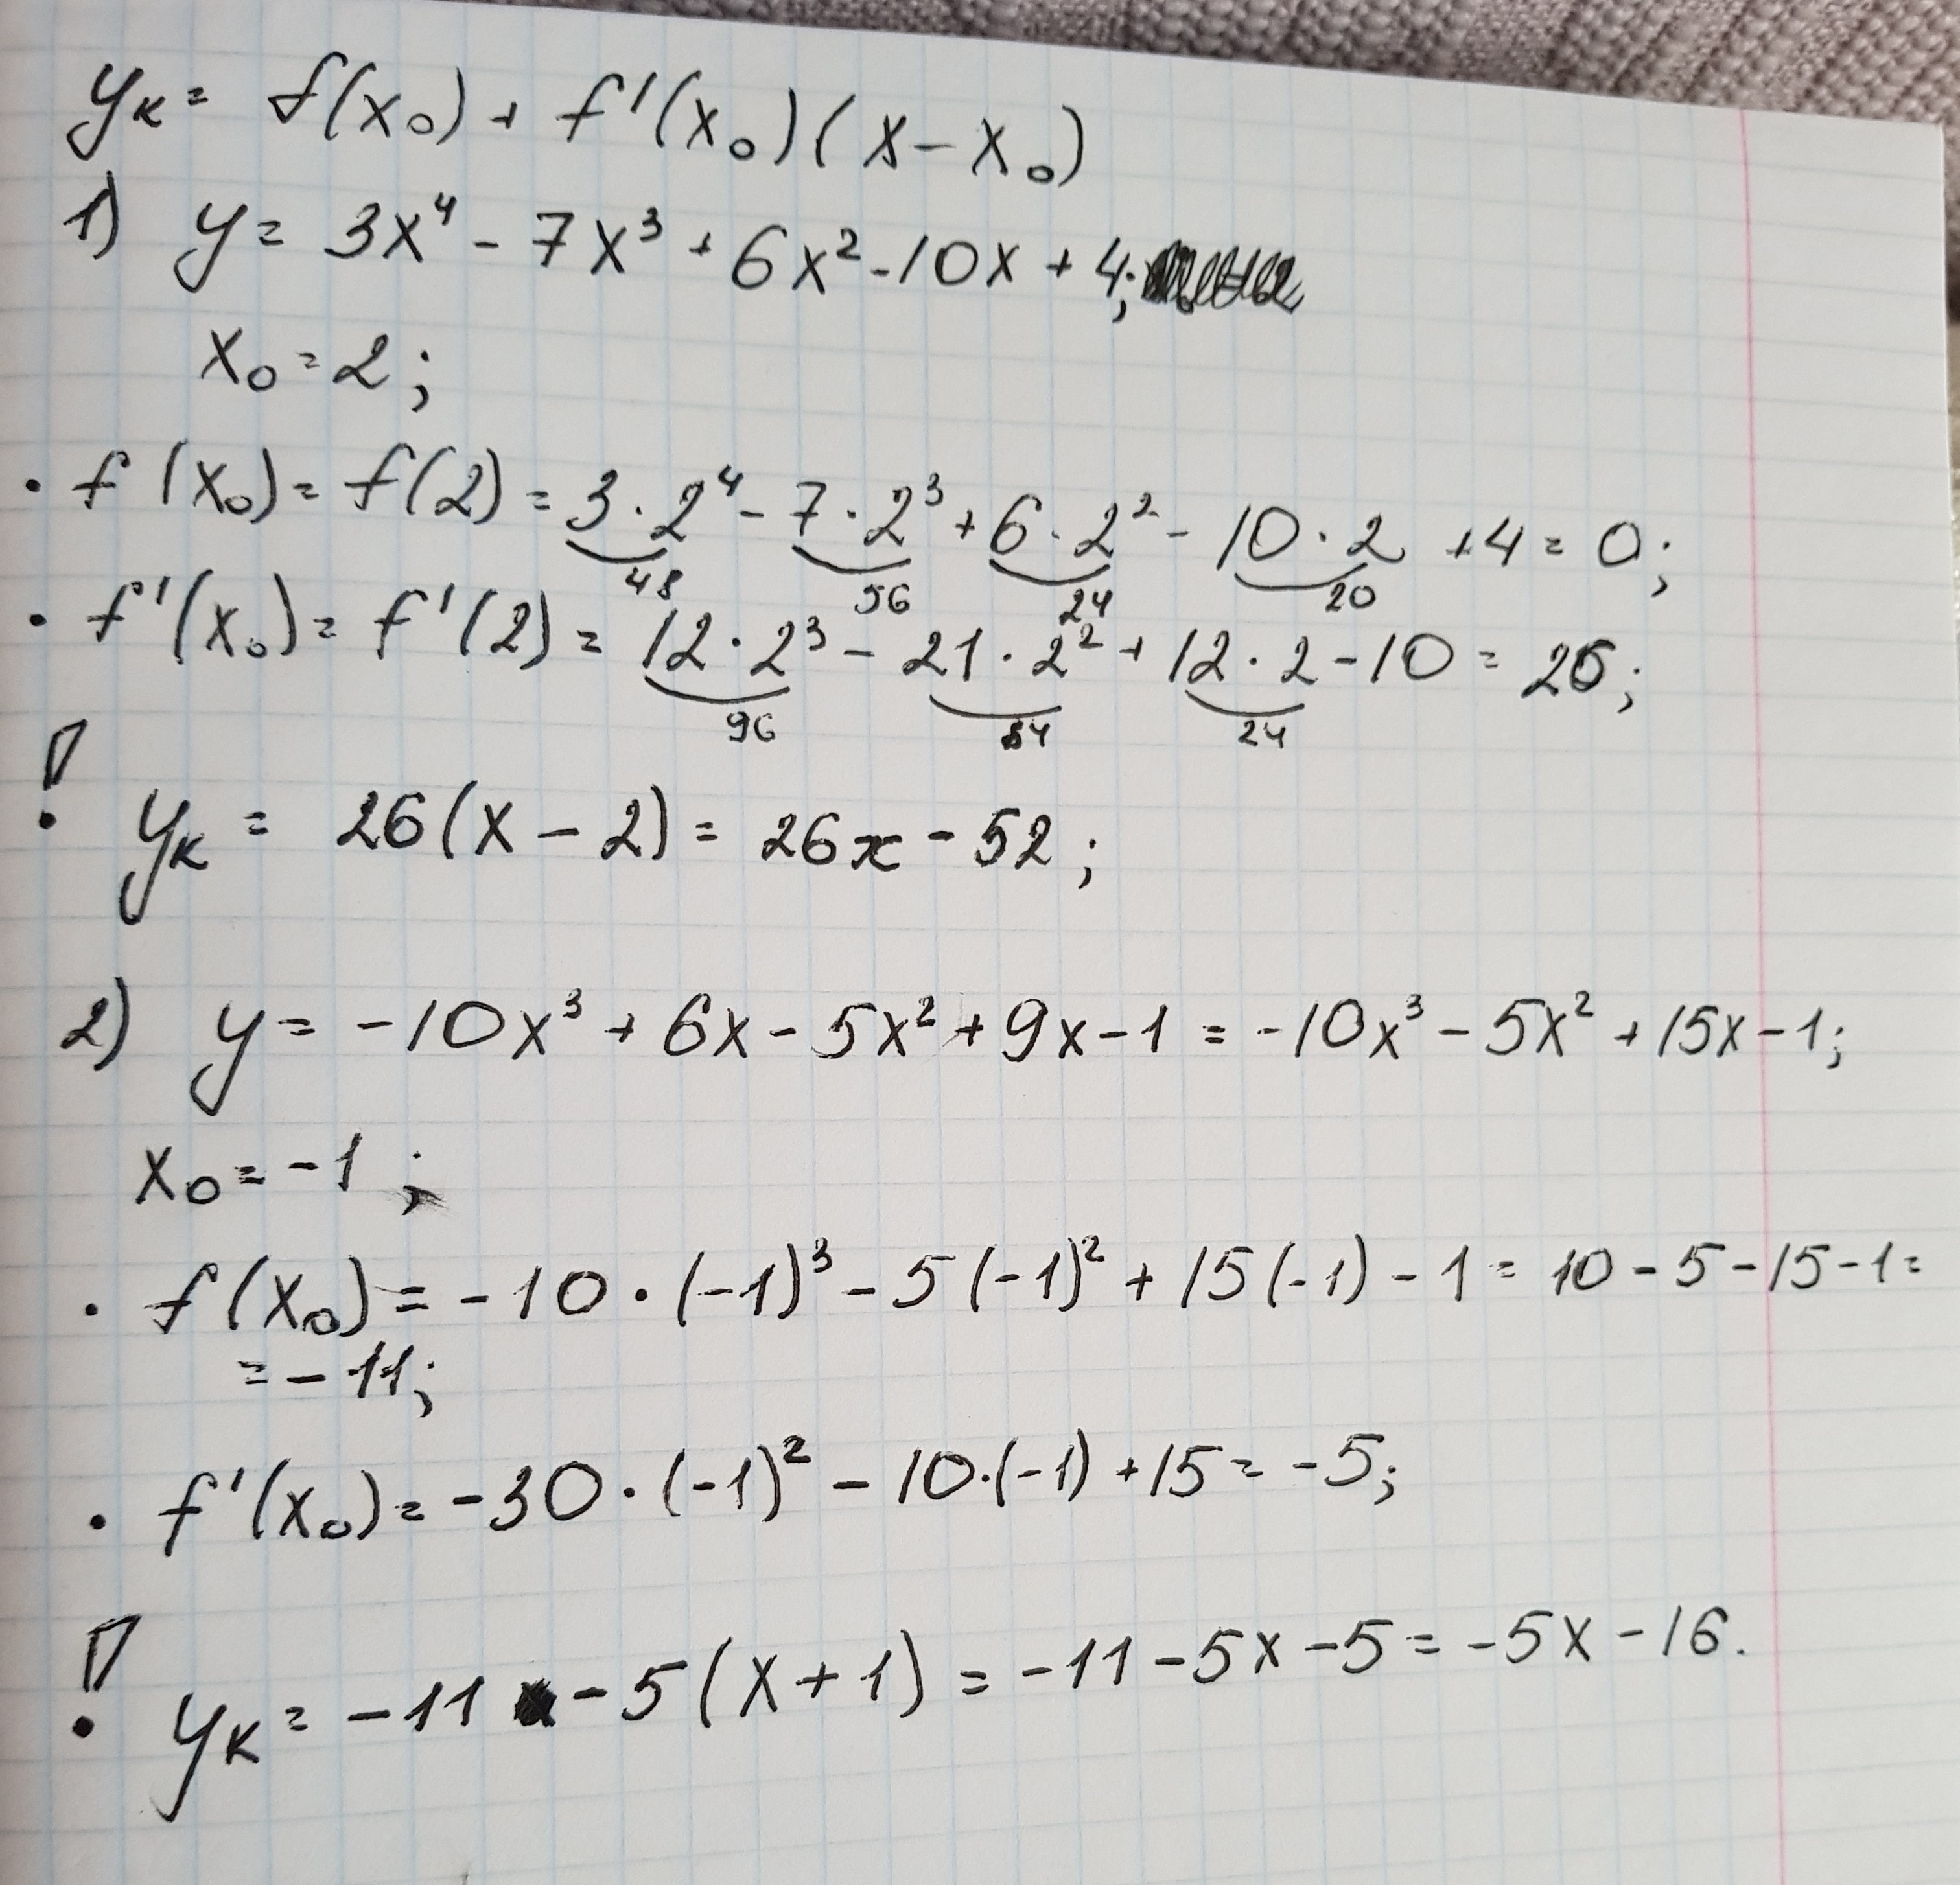 yₖ = f(x₀) + f'(x₀)(x - x₀)
1) y = 3x⁴ - 7x³ + 6x² - 10x + 4;
x₀ = 2;
• f(x₀) = f(2) = 3 · 2⁴ - 7 · 2³ + 6 · 2² - 10 · 2 + 4 = 0;
48 56 24 20
• f'(x₀) = f'(2) = 12 · 2³ - 21 · 2² + 12 · 2 - 10 = 26;
96 84 24
! yₖ = 26(x - 2) = 26x - 52;
2) y = -10x³ + 6x - 5x² + 9x - 1 = -10x³ - 5x² + 15x - 1;
x₀ = -1;
• f(x₀) = -10 · (-1)³ - 5(-1)² + 15(-1) - 1 = 10 - 5 - 15 - 1 =
= -11;
• f'(x₀) = -30 · (-1)² - 10·(-1) + 15 = -5;
! yₖ = -11 - 5(x + 1) = -11 - 5x - 5 = -5x - 16.